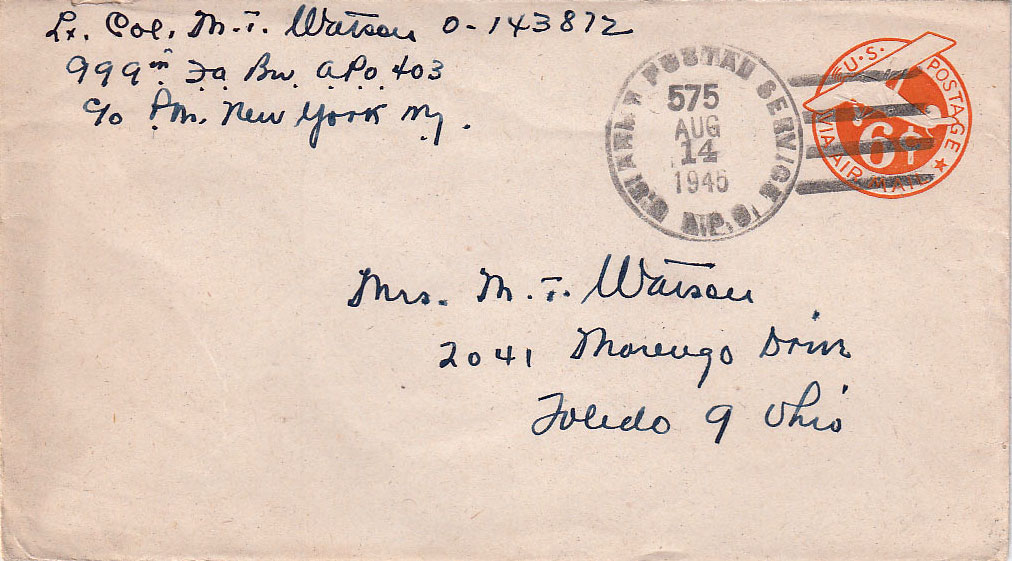 Lt. Col. M. T. Watson O-143872
999th Fa Bn. A.P.O. 403
c/o P.M. New York N.Y.
U.S. POSTAGE
VIA AIR MAIL
6¢
POSTAL SERVICE
575
AUG
14
1945
U.S. A.P.O.
Mrs. M. T. Watson
2041 Marengo Drive
Toledo 9 Ohio